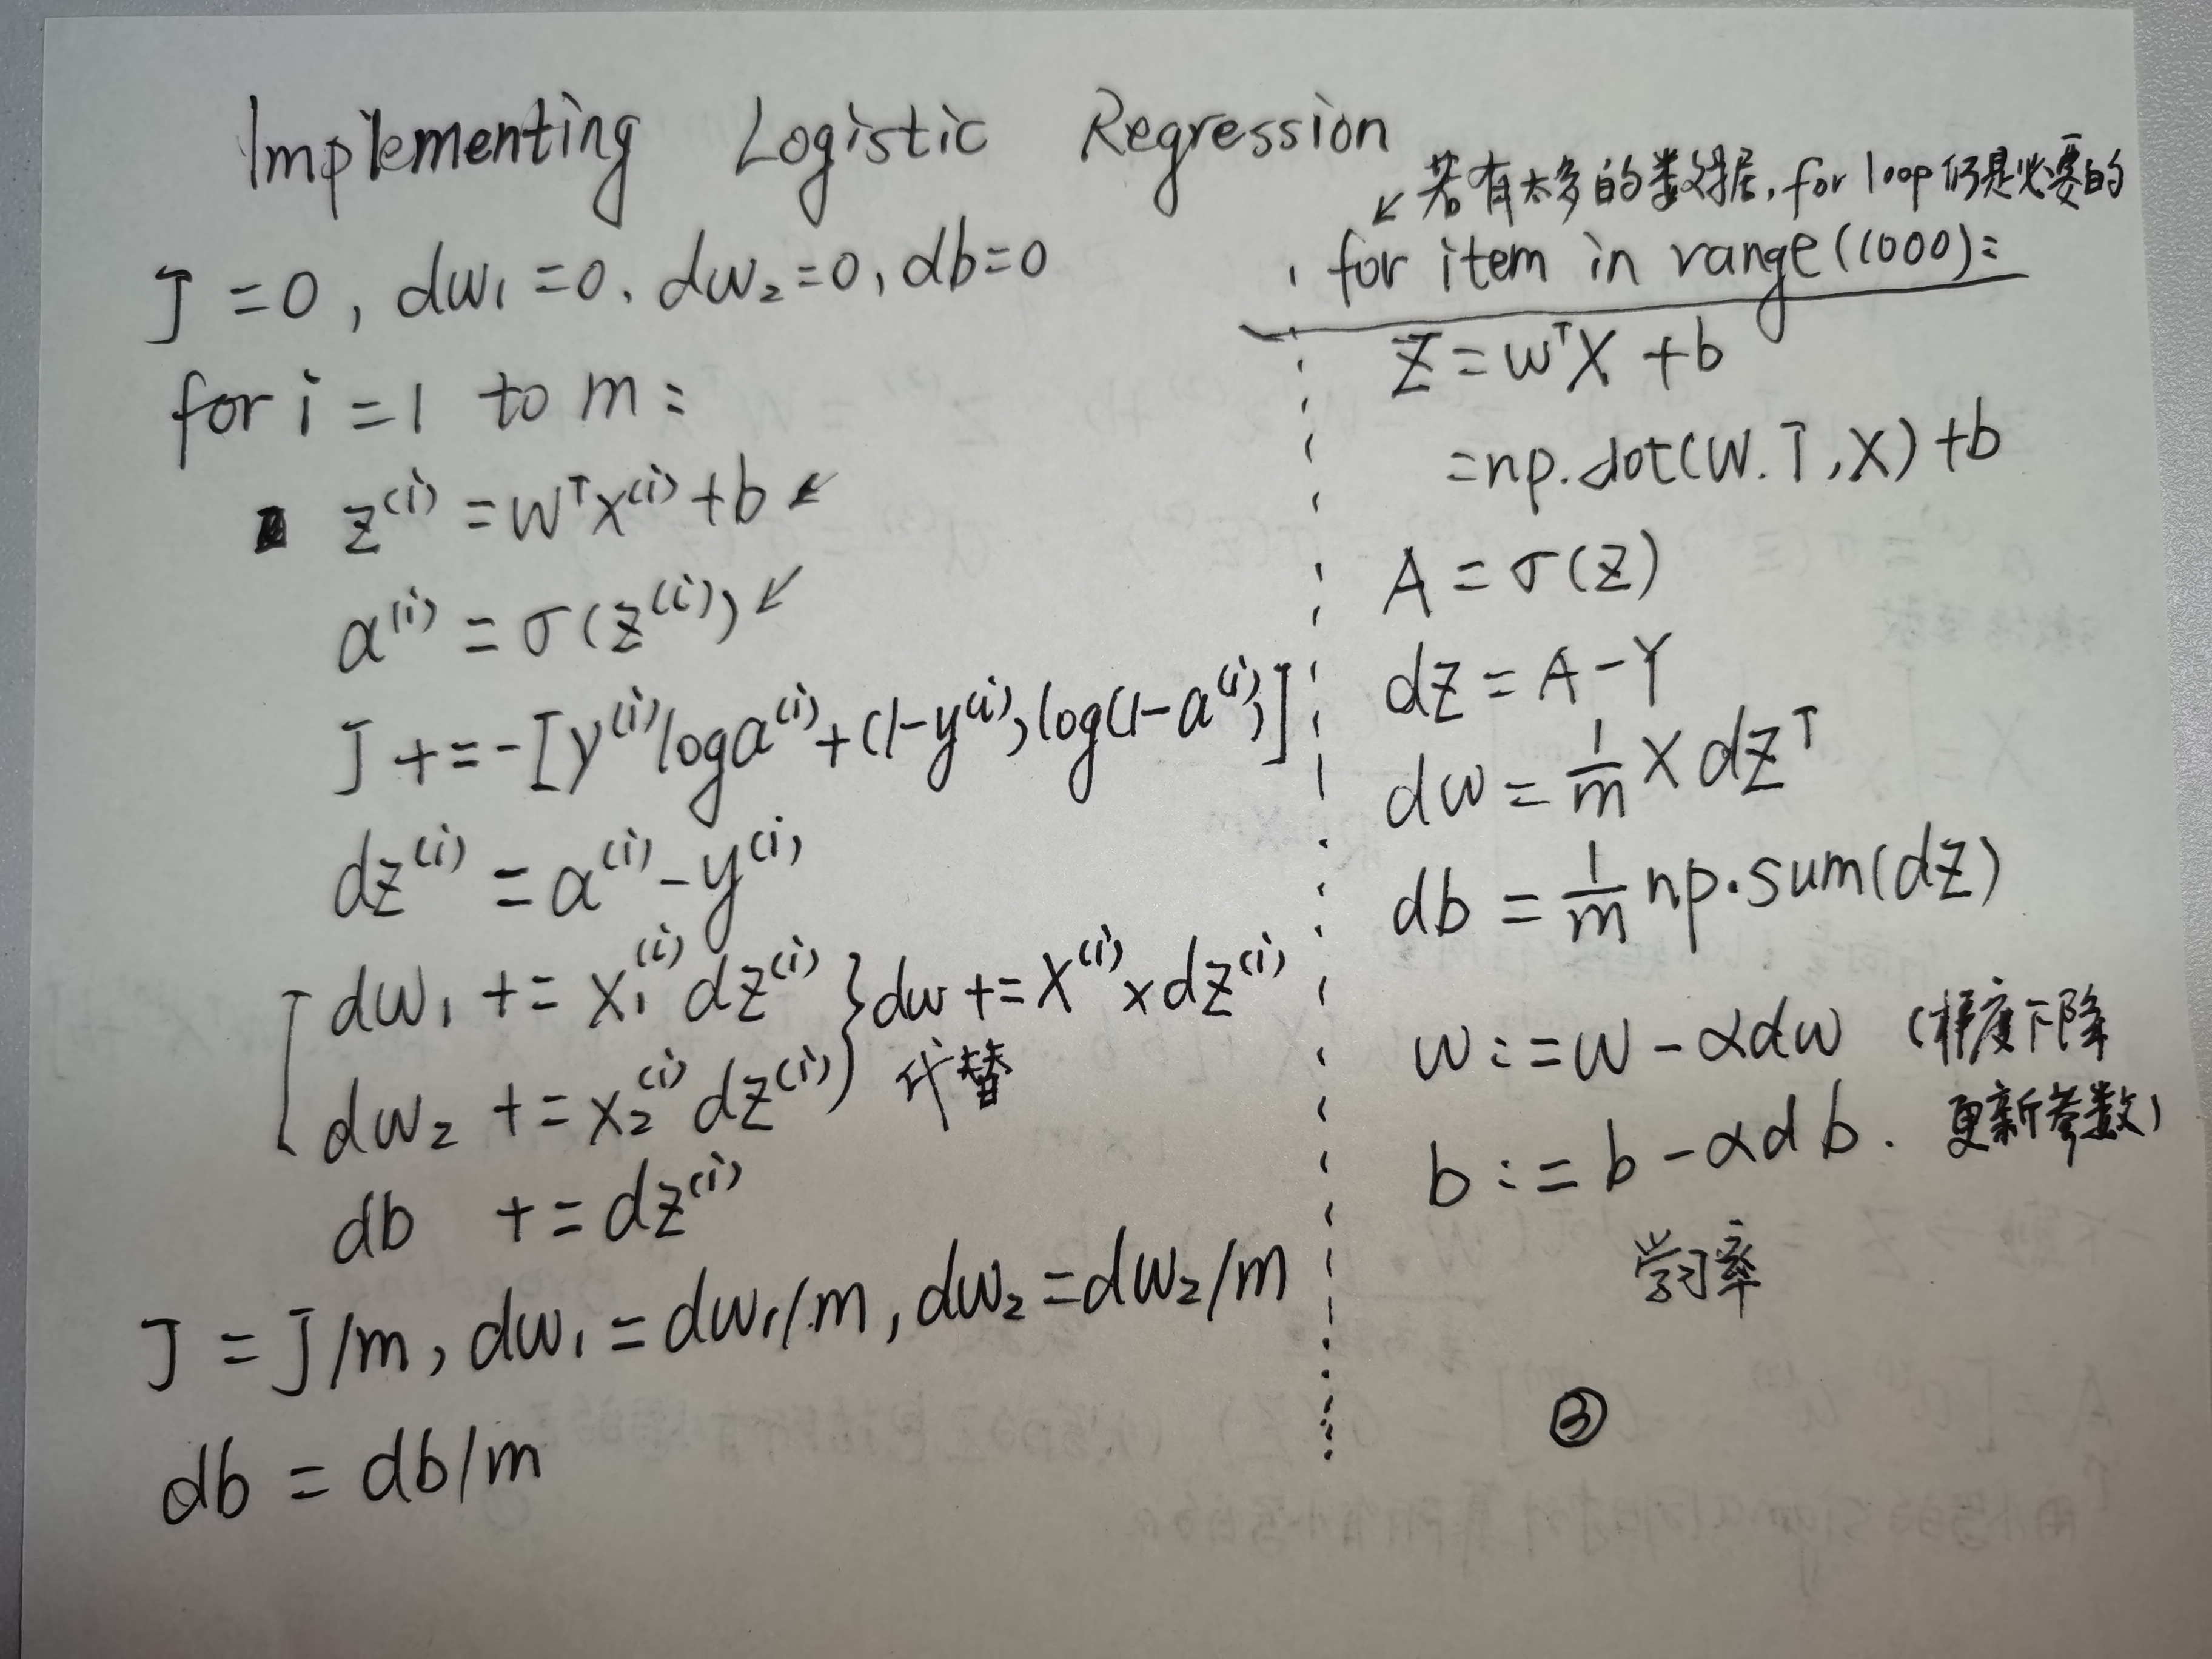 Implementing Logistic Regression
J = 0, dw₁ = 0. dw₂ = 0, db = 0
for i = 1 to m:
z⁽ⁱ⁾ = wᵀx⁽ⁱ⁾ + b ↙
a⁽ⁱ⁾ = σ(z⁽ⁱ⁾) ↙
J += -[y⁽ⁱ⁾loga⁽ⁱ⁾ + (1-y⁽ⁱ⁾)log(1-a⁽ⁱ⁾)]
dz⁽ⁱ⁾ = a⁽ⁱ⁾ - y⁽ⁱ⁾
dw₁ += x₁⁽ⁱ⁾ dz⁽ⁱ⁾ } dw += X⁽ⁱ⁾ x dz⁽ⁱ⁾
dw₂ += x₂⁽ⁱ⁾ dz⁽ⁱ⁾ 代替
db += dz⁽ⁱ⁾
J = J/m, dw₁ = dw₁/m, dw₂ = dw₂/m
db = db/m
↙ 若有太多的数据, for loop 仍是必要的
for item in range(1000):
Z = wᵀX + b
= np.dot(W.T, X) + b
A = σ(Z)
dZ = A - Y
dw = 1/m X dZᵀ
db = 1/m np.sum(dZ)
w := w - αdw (梯度下降
b := b - αdb. 更新参数)
学习率
③